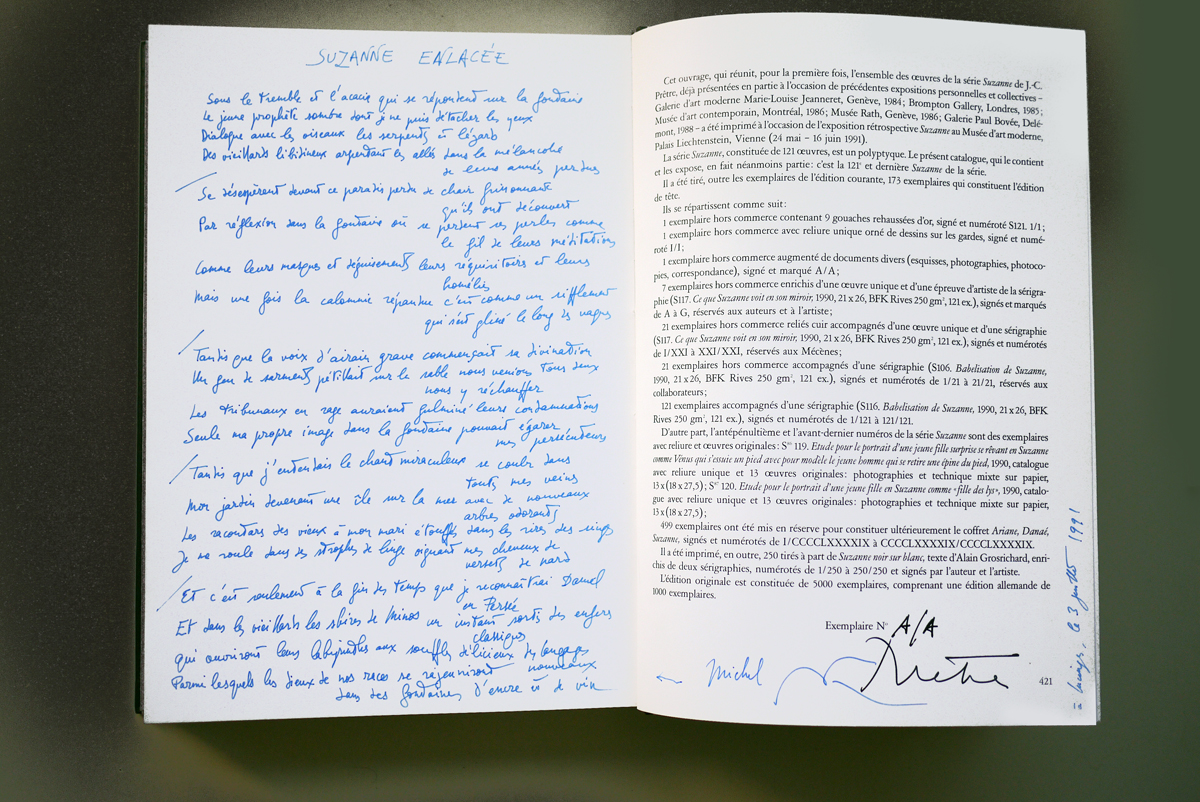 SUZANNE ENLACÉE
Sous le tremble et l'acacia qui se répondent sur la fontaine
Le jeune prophète sombre dont je ne puis détacher les yeux
Dialogue avec les oiseaux les serpents et lézards
Des vieillards libidineux arpentant les allées dans la mélancolie
de leurs années perdues
Se désespèrent devant ce paradis perdu de chair frissonnante
qu'ils ont découvert
Par réflexion dans la fontaine où se perdent ses perles comme
le fil de leurs méditations
Comme leurs masques et déguisements leurs réquisitoires et leurs
homélies
Mais une fois la calomnie répandue c'est comme un sifflement
qui s'est glissé le long des vagues
Tandis que la voix d'airain grave commençait sa divination
Un feu de sarments pétillait sur le sable nous venions tous deux
nous y réchauffer
Les tribunaux en rage auraient fulminé leurs condamnations
Seule ma propre image dans la fontaine pouvait égarer
mes persécuteurs
Tandis que j'entendais le chant miraculeux se couler dans
toutes mes veines
Mon jardin devenant une île sur la mer avec de nouveaux
arbres odorants
Les racontars des vieux à mon mari étouffés dans les rires des
Je me roule dans des strophes de linge oignant mes cheveux de
versets de nard
Et c'est seulement à la fin des temps que je reconnaîtrai Daniel
en Persée
Et dans les vieillards les sbires de Minos un instant sortis des enfers
classiques
Qui ouvriront leurs labyrinthes aux souffles délicieux des langages
nouveaux
Parmi lesquels les dieux de nos races se rajeuniront
dans des fontaines d'encre et de vin
Cet ouvrage, qui réunit, pour la première fois, l'ensemble des œuvres de la série Suzanne de J.-C.
Prêtre, déjà présentées en partie à l'occasion de précédentes expositions personnelles et collectives –
Galerie d'art moderne Marie-Louise Jeanneret, Genève, 1984; Brompton Gallery, Londres, 1985;
Musée d'art contemporain, Montréal, 1986; Musée Rath, Genève, 1986; Galerie Paul Bovée, Delé-
mont, 1988 – a été imprimé à l'occasion de l'exposition rétrospective Suzanne au Musée d'art moderne,
Palais Liechtenstein, Vienne (24 mai – 16 juin 1991).
La série Suzanne, constituée de 121 œuvres, est un polyptyque. Le présent catalogue, qui le contient
et les expose, en fait néanmoins partie: c'est la 121e et dernière Suzanne de la série.
Il a été tiré, outre les exemplaires de l'édition courante, 173 exemplaires qui constituent l'édition
de tête.
Ils se répartissent comme suit:
1 exemplaire hors commerce contenant 9 gouaches rehaussées d'or, signé et numéroté S121. 1/1;
1 exemplaire hors commerce avec reliure unique orné de dessins sur les gardes, signé et numé-
roté I/I;
1 exemplaire hors commerce augmenté de documents divers (esquisses, photographies, photoco-
pies, correspondance), signé et marqué A/A;
7 exemplaires hors commerce enrichis d'une œuvre unique et d'une épreuve d'artiste de la sérigra-
phie (S117. Ce que Suzanne voit en son miroir, 1990, 21 x 26, BFK Rives 250 gm², 121 ex.), signés et marqués
de A à G, réservés aux auteurs et à l'artiste;
21 exemplaires hors commerce reliés cuir accompagnés d'une œuvre unique et d'une sérigraphie
(S117. Ce que Suzanne voit en son miroir, 1990, 21 x 26, BFK Rives 250 gm², 121 ex.), signés et numérotés
de I/XXI à XXI/XXI, réservés aux Mécènes;
21 exemplaires hors commerce accompagnés d'une sérigraphie (S106. Babelisation de Suzanne,
1990, 21 x 26, BFK Rives 250 gm², 121 ex.), signés et numérotés de 1/21 à 21/21, réservés aux
collaborateurs;
121 exemplaires accompagnés d'une sérigraphie (S116. Babelisation de Suzanne, 1990, 21 x 26, BFK
Rives 250 gm², 121 ex.), signés et numérotés de 1/121 à 121/121.
D'autre part, l'antépénultième et l'avant-dernier numéros de la série Suzanne sont des exemplaires
avec reliure et œuvres originales: S 119. Etude pour le portrait d'une jeune fille surprise se rêvant en Suzanne
comme Vénus qui s'essuie un pied avec pour modèle le jeune homme qui se retire une épine du pied, 1990, catalogue
avec reliure unique et 13 œuvres originales: photographies et technique mixte sur papier,
13 x (18 x 27,5); S 120. Etude pour le portrait d'une jeune fille en Suzanne comme «fille des lys», 1990, catalo-
gue avec reliure unique et 13 œuvres originales: photographies et technique mixte sur papier,
13 x (18 x 27,5);
499 exemplaires ont été mis en réserve pour constituer ultérieurement le coffret Ariane, Danaé,
Suzanne, signés et numérotés de I/CCCCLXXXXIX à CCCCLXXXXIX/CCCCLXXXXIX.
Il a été imprimé, en outre, 250 tirés à part de Suzanne noir sur blanc, texte d'Alain Grosrichard, enri-
chis de deux sérigraphies, numérotés de 1/250 à 250/250 et signés par l'auteur et l'artiste.
L'édition originale est constituée de 5000 exemplaires, comprenant une édition allemande de
1000 exemplaires.
Exemplaire N° A/A
Michel
Prêtre
421
à Lucinges, le 3 juillet 1991